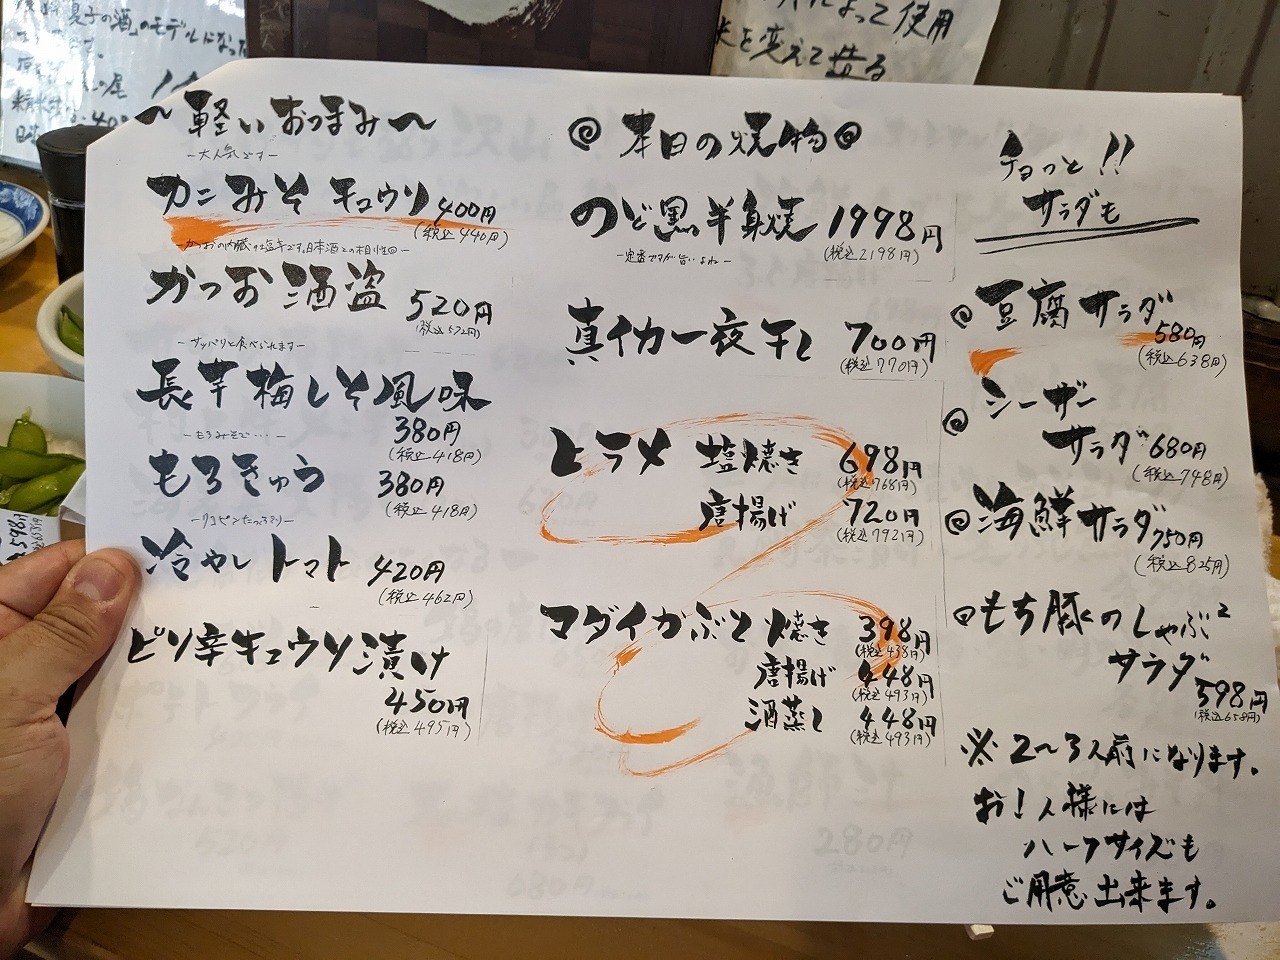 〜軽いおつまみ〜
-大人気です-
カニみそキュウリ 400円
(税込440円)
-かつおの内臓の塩辛です。日本酒との相性◎-
かつお酒盗 520円
(税込572円)
-サッパリと食べられます-
長芋梅しそ風味
380円
(税込418円)
-もろみそで・・・-
もろきゅう 380円
(税込418円)
冷やしトマト 420円
(税込462円)
ピリ辛キュウリ漬け
450円
(税込495円)
◎本日の焼物◎
のど黒半身焼 1998円
(税込2198円)
-定番ですが旨いよね-
真イカ一夜干し 700円
(税込770円)
ヒラメ 塩焼き 698円
(税込768円)
唐揚げ 720円
(税込792円)
マダイかぶと 焼き 398円
(税込438円)
唐揚げ 448円
(税込493円)
酒蒸し 448円
(税込493円)
チョっと!!
サラダも
◎豆腐サラダ
580円
(税込638円)
◎シーザー
サラダ 680円
(税込748円)
◎海鮮サラダ 750円
(税込825円)
◎もち豚のしゃぶ²
サラダ
598円
(税込658円)
※2〜3人前になります。
お1人様には
ハーフサイズも
ご用意出来ます。
のモデルになった
によって使用
米を変えて造る